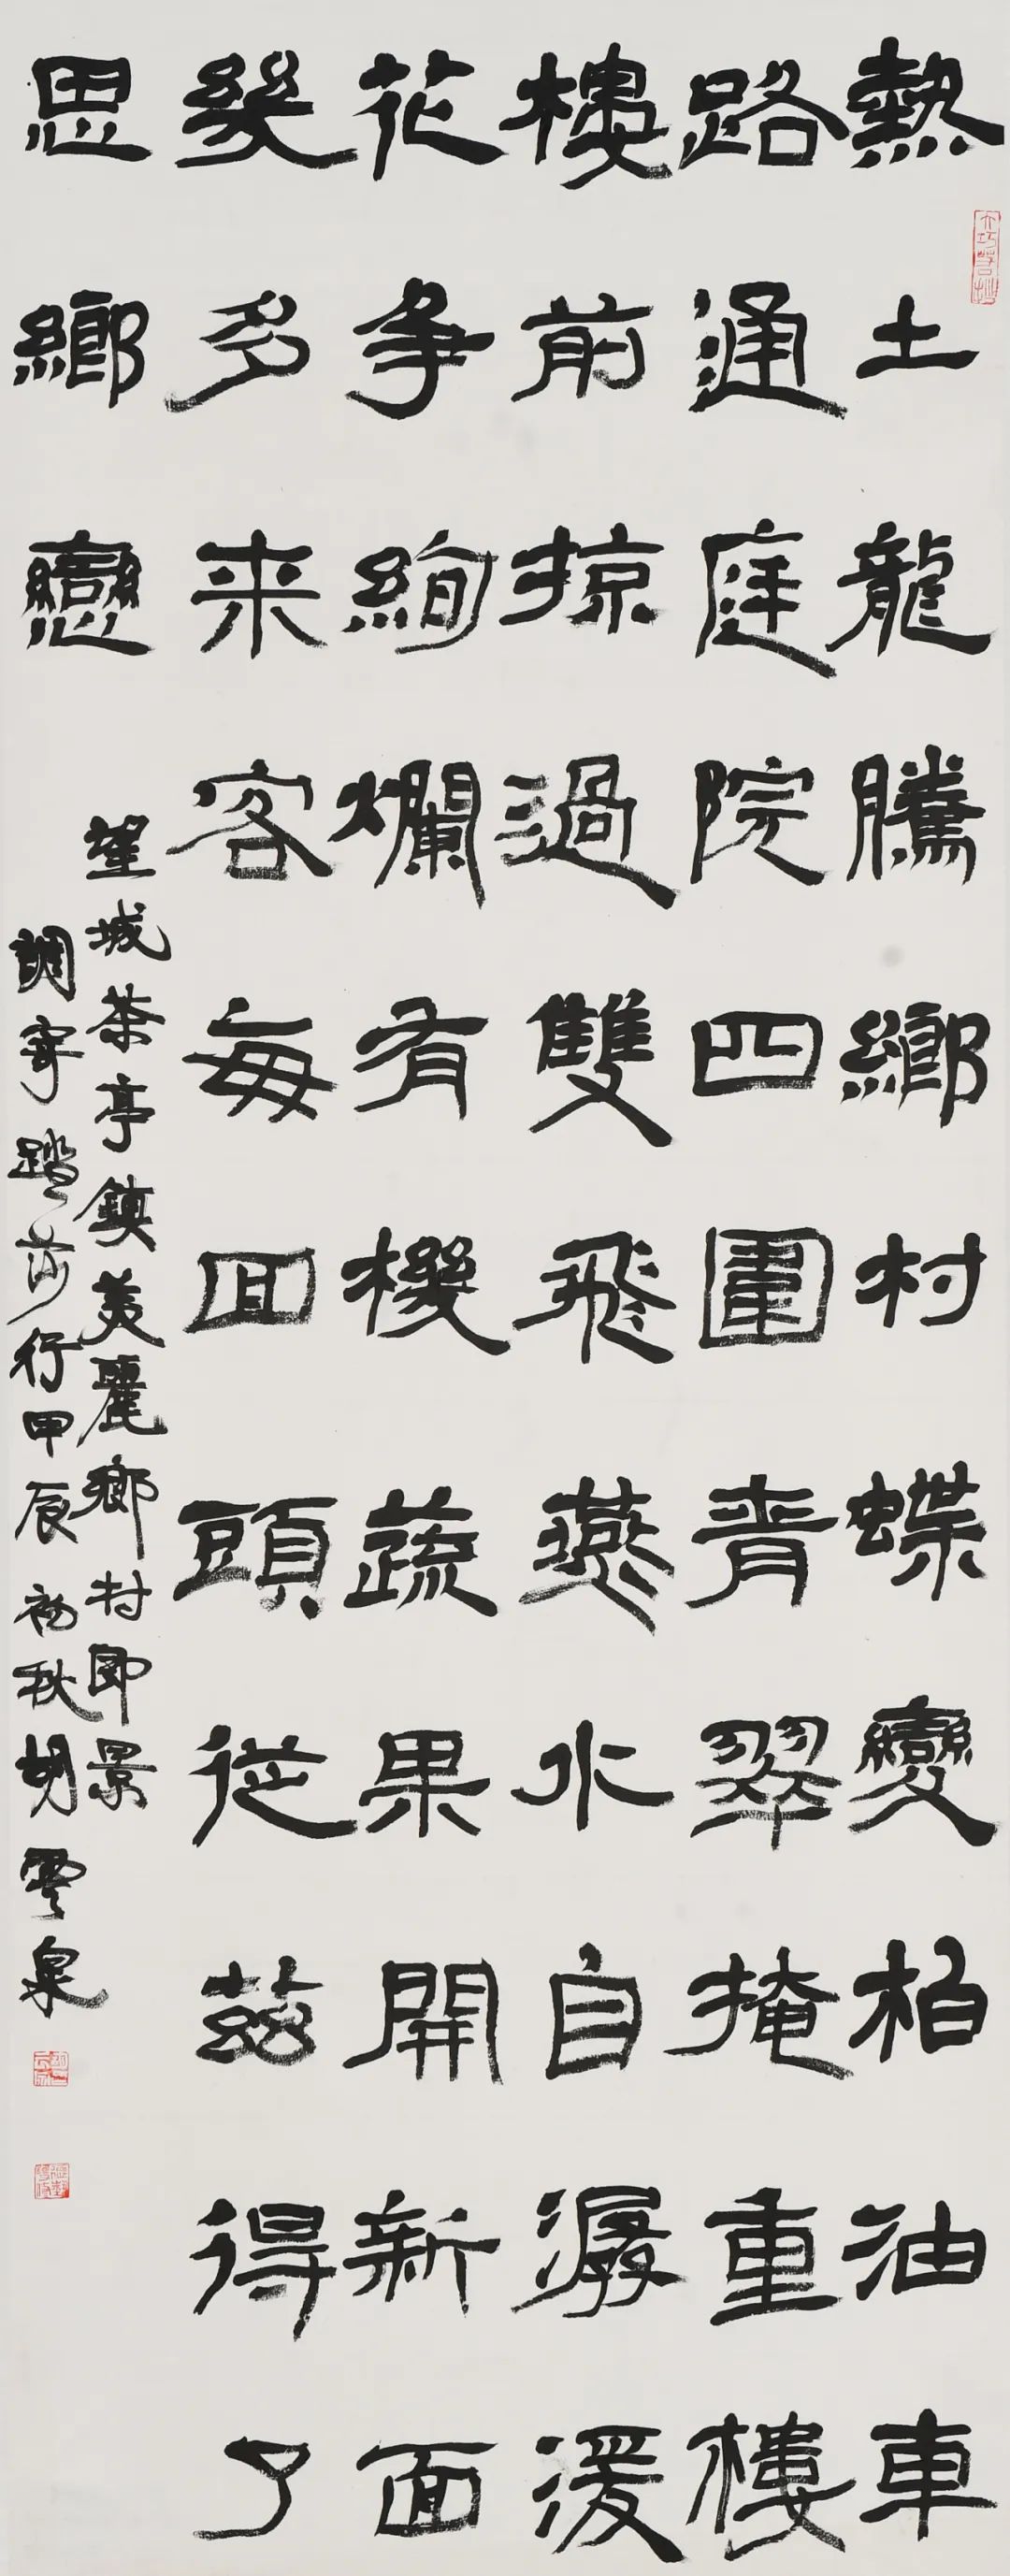 熱土龍騰鄉村蝶變柏油車
路通庭院四圍青翠掩重樓
樓前掠過雙飛燕水自潺湲
花争絢爛有機蔬果開新面
幾多来客每回頭從茲得了
思鄉戀
望城茶亭鎮美麗鄉村即景
調寄踏莎行甲辰初秋胡雲泉
大巧若拙